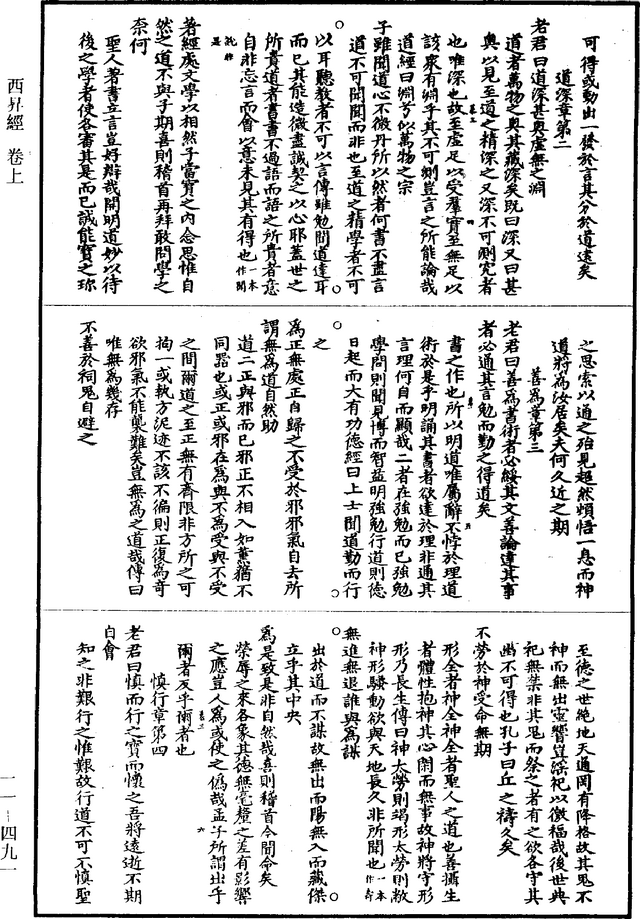 可得或動出一發於言其分於道遠矣
道深章第二
老君曰道深甚奧虛無之淵
道者萬物之奧其藏深矣既曰深又曰甚
奧以見至道之精深之又深不可測究者
也唯深也故至虛足以受羣實至無足以
該衆有淵乎其不可測豈言之所能論哉
道經曰淵兮似萬物之宗
子雖聞道心不微丹所以然者何書不盡言
道不可聞聞而非也至道之精學者不可
以耳聽教者不可以言傳雖勉聞道達耳
而已其能造微盡誠契之以心耶蓋世之
所貴道者書書不過語而語之所貴者意
自非忘言而會以意未見其有得也一本作聞
著經處文學以相然子當寶之內念思惟自
然之道不與子期喜則稽首再拜敢問學之
奈何
聖人著書立言豈好辯哉開明道妙以待
後之學者使各審其是而已誠能寶之珎
之思索以通之殆見超然頓悟一息而神
道將為汝居矣夫何久近之期
善為章第三
老君曰善為書術者必綏其文善論達其事
者必通其言勉而勤之得道矣
書之作也所以明道唯屬辭不悖於理道
術於是乎明誦其書者欲達於理非通其
言理何自而顯哉二者在強勉而已強勉
學問則聞見博而智益明強勉行道則德
日起而大有功德經曰上士聞道勤而行
之
為正無處正自歸之不受於邪邪氣自去所
謂無為道自然助
道二正與邪而已邪正不相入如薰蕕不
同器也或正或邪在為與不為受與不受
之間爾道之至正無有齊限非方所之可
拘一或執方泥迹不該不徧則正復為奇
欲邪氣不能襲難矣豈無為之道哉傳曰
唯無為幾存
不善於祠鬼自避之
至德之世絶地天通罔有降格故其鬼不
神而無出靈響豈滛祀以徼福哉後世典
祀無禁非其鬼而祭之者有之欲各守其
幽不可得也孔子曰丘之禱久矣
不勞於神受命無期
形全者神全神全者聖人之道也善攝生
者體性抱神其心閑而無事故神將守形
形乃長生傳曰神太勞則竭形太勞則敝
神形騷動欲與天地長久非所聞也一本作壽
無進無退誰與為謀
出於道而不謀故無出而陽無入而藏傑
立乎其中央
為是致是非自然哉喜則稽首今聞命矣
榮辱之來各象其德無毫釐之差有影響
之應豈人為或使之偽哉孟子所謂出乎
爾者反乎爾者也
慎行章第四
老君曰慎而行之寶而懷之吾將遠逝不期
自會
知之非艱行之惟艱故行道不可不慎聖
西昇經 卷上
一一-四九一